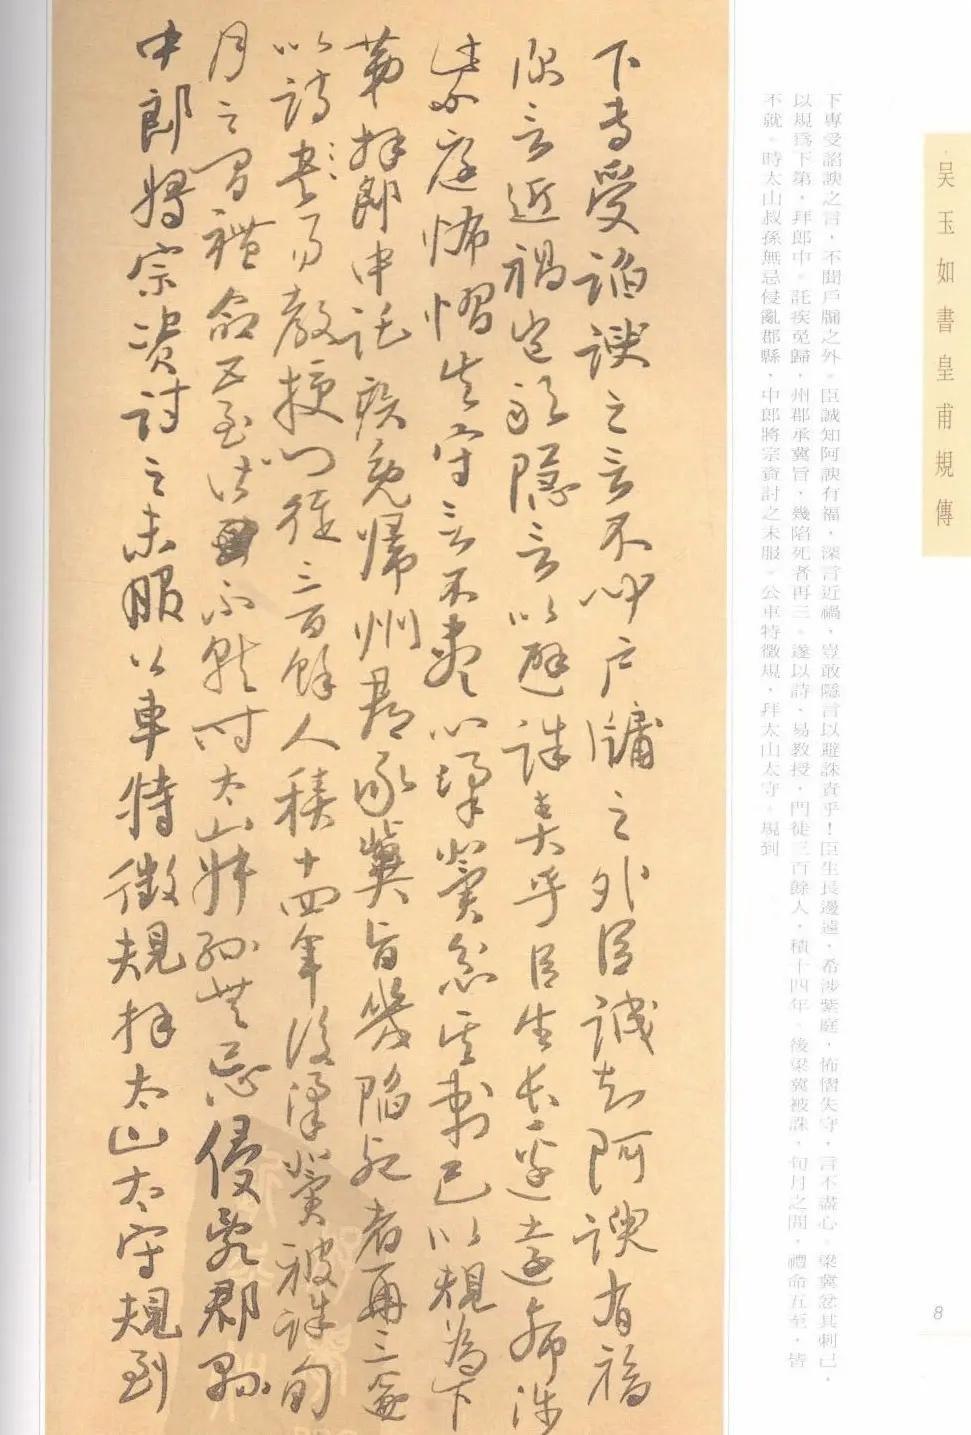 吴玉如書皇甫規傳
8
下專受諂諛之言，不聞戶牖之外。臣誠知阿諛有福，深言近禍，豈敢隱言以避誅責乎！臣生長邊遠，希涉紫庭，怖慴失守，言不盡心。梁冀忿其刺己，
以規爲下第，拜郎中。託疾免歸，州郡承冀旨，幾陷死者再三。遂以詩、易教授，門徒三百餘人，積十四年。後梁冀被誅，旬月之間，禮命五至，皆
不就。時太山叔孫無忌侵亂郡縣，中郎將宗資討之未服。公車特徵規，拜太山太守。規到
下專受諂諛之言不聞戶牖之外臣誠知阿諛有福
深言近禍豈敢隱言以避誅責乎臣生長邊遠希涉
紫庭怖慴失守言不盡心梁冀忿其刺己以規為下
第拜郎中託疾免歸州郡承冀旨幾陷死者再三遂
以詩易教授門徒三百餘人積十四年後梁冀被誅旬
月之間禮命五至皆不就時太山叔孫無忌侵亂郡縣
中郎將宗資討之未服公車特徵規拜太山太守規到